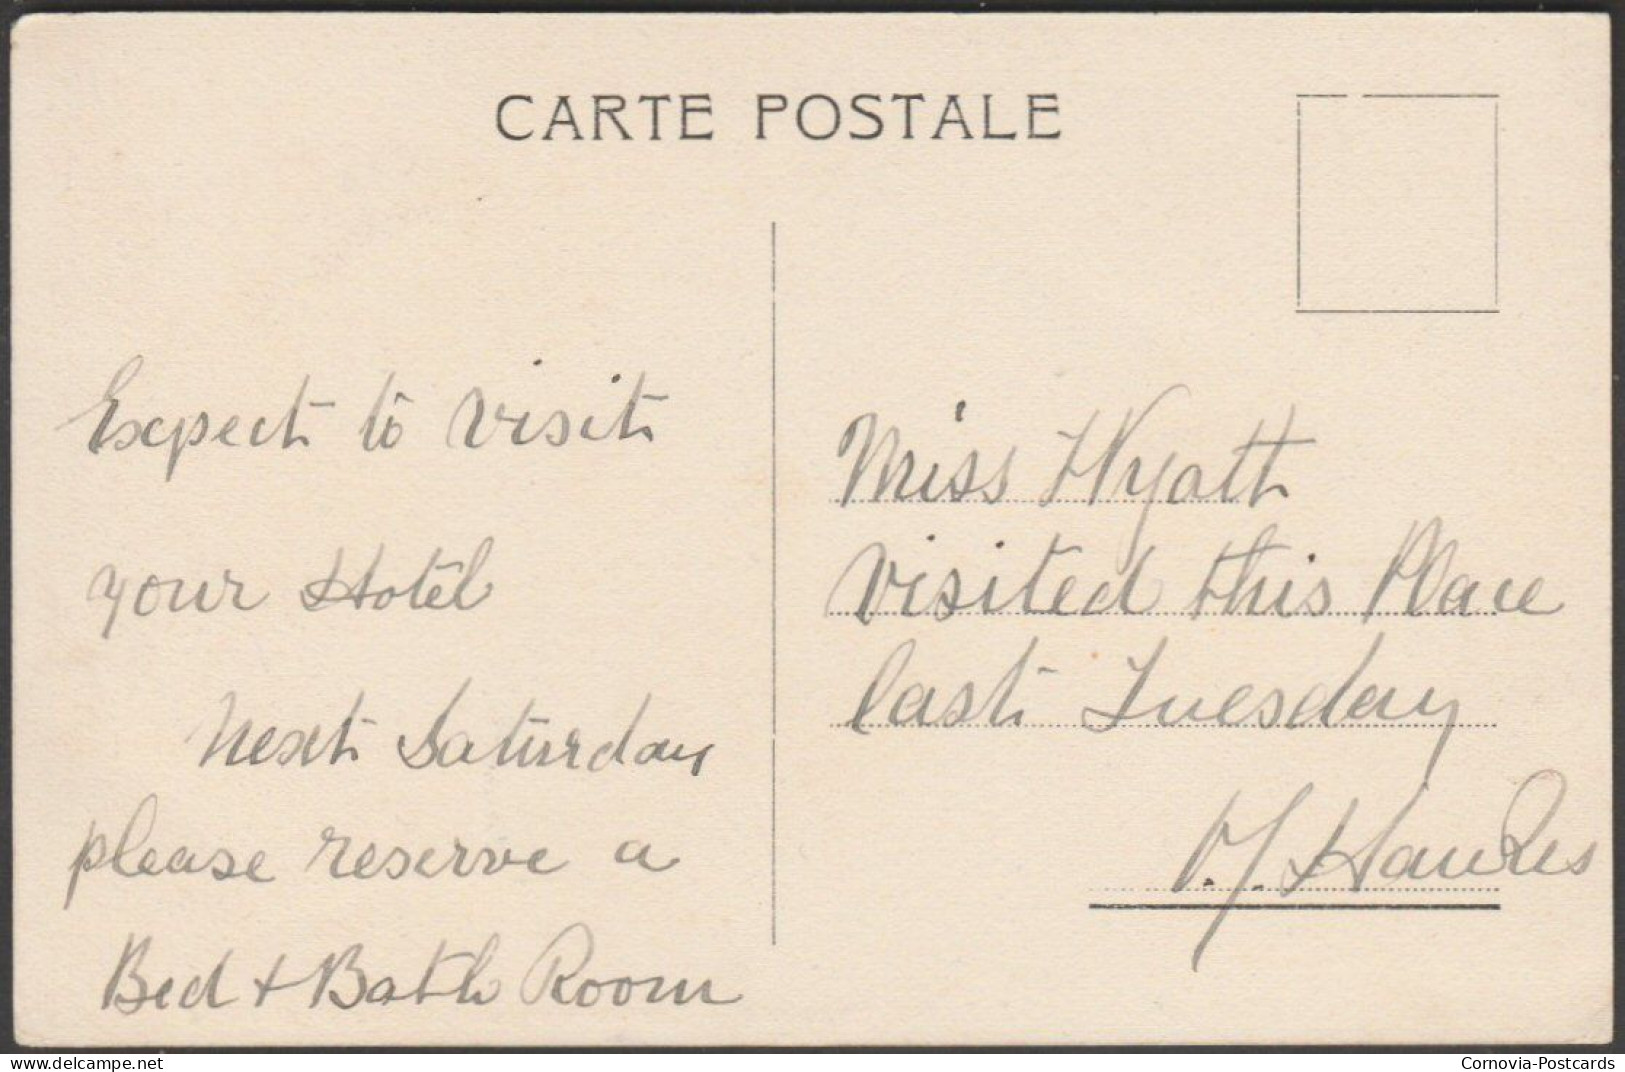 CARTE POSTALE
Expect to visit
your Hotel
Next Saturday
please reserve a
Bed + Bath Room
Miss Wyatt
visited this Place
last Tuesday
Hawkes
Cornovia-Postcards